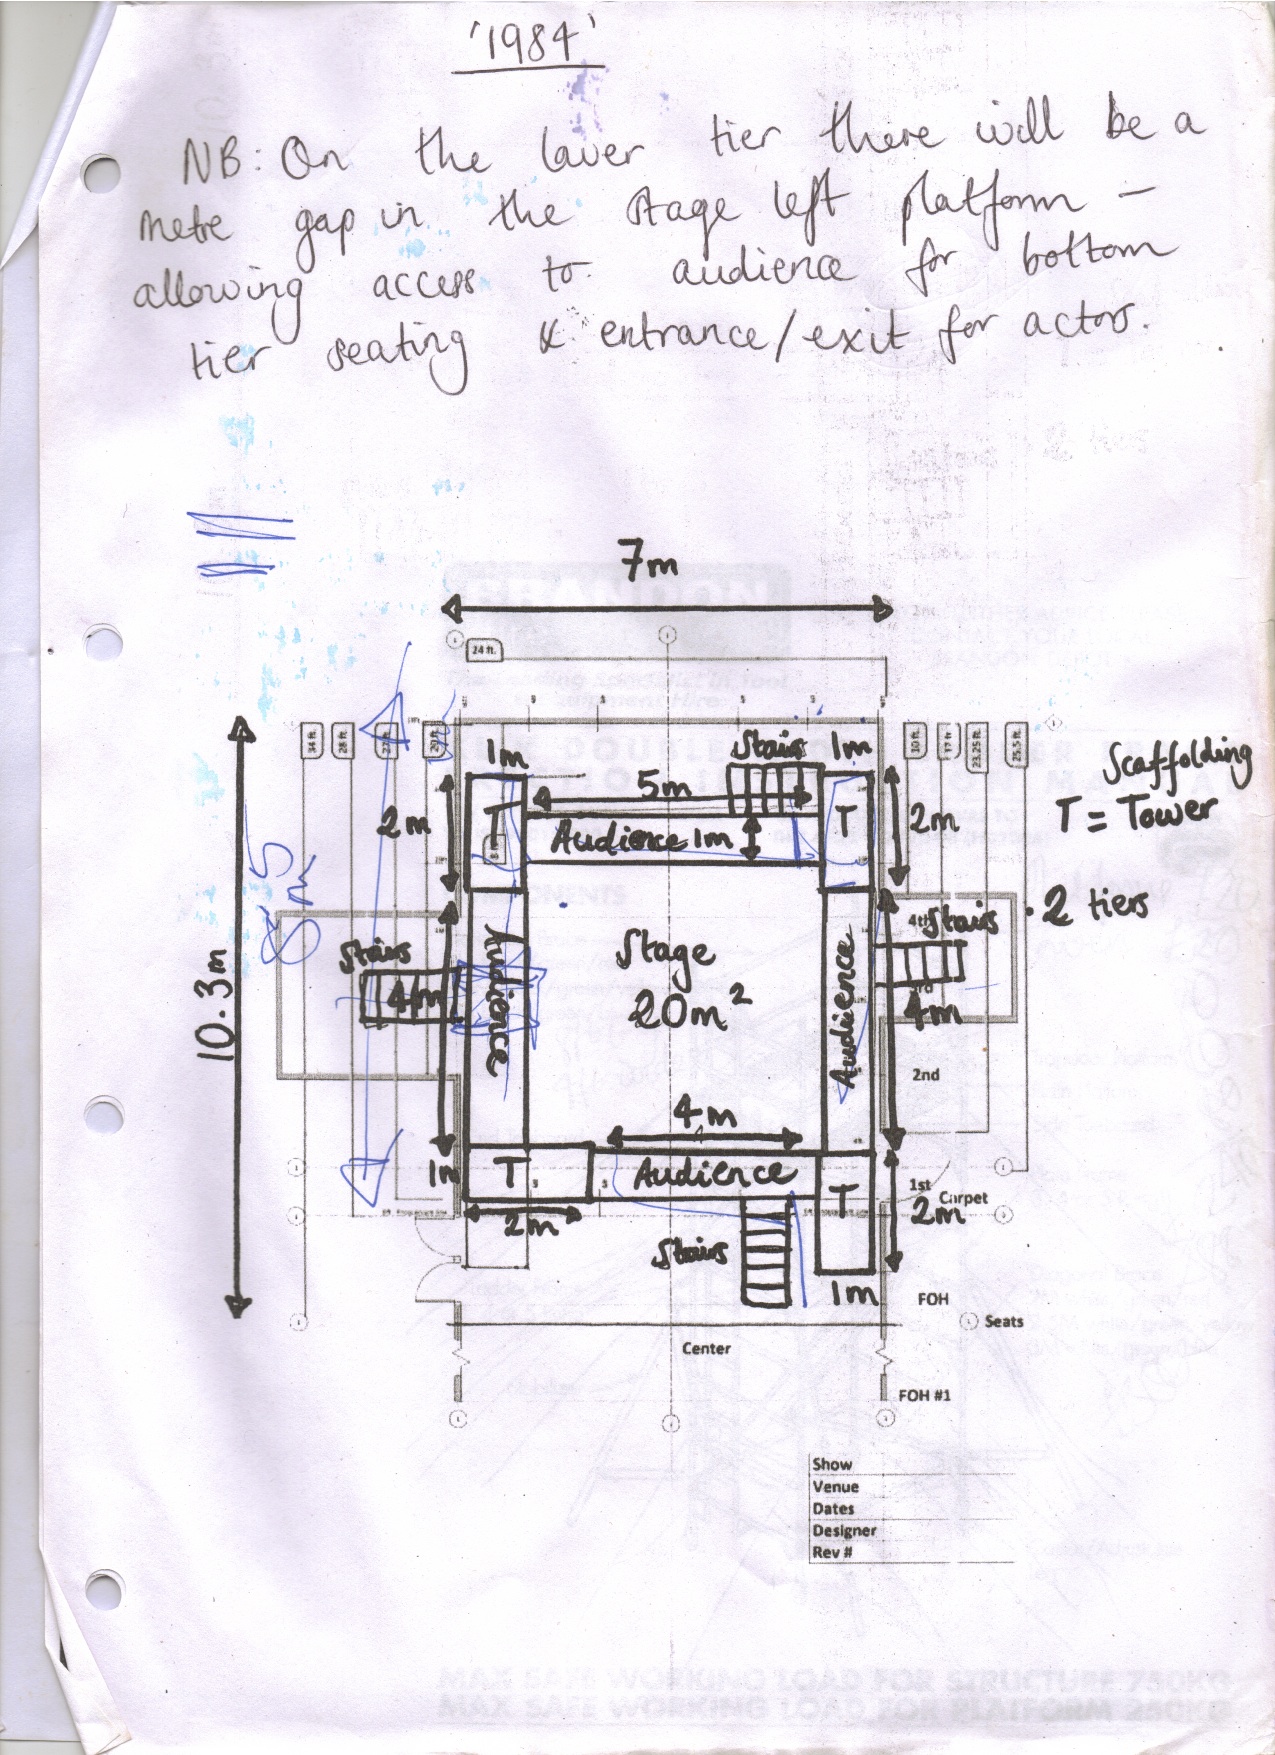 '1984'
NB: On the lower tier there will be a
metre gap in the stage left platform –
allowing access to audience for bottom
tier seating & entrance/exit for actors.
7m
24 ft.
34 ft
28 ft
10 ft
17 ft
23.25 ft
25.5 ft
1m
Stairs
1m
5m
2m
T
Audience 1m
T
2m
Scaffolding
T = Tower
8.5m
2 tiers
4th
Stairs
Stairs
Audience
Stage
20m²
Audience
4m
4m
10.3m
2nd
4m
1m
T
Audience
T
1st
Carpet
2m
2m
Stairs
1m
FOH
Seats
Center
FOH #1
Show
Venue
Dates
Designer
Rev #
MAX SAFE WORKING LOAD FOR STRUCTURE 750KG
MAX SAFE WORKING LOAD FOR PLATFORM 250KG